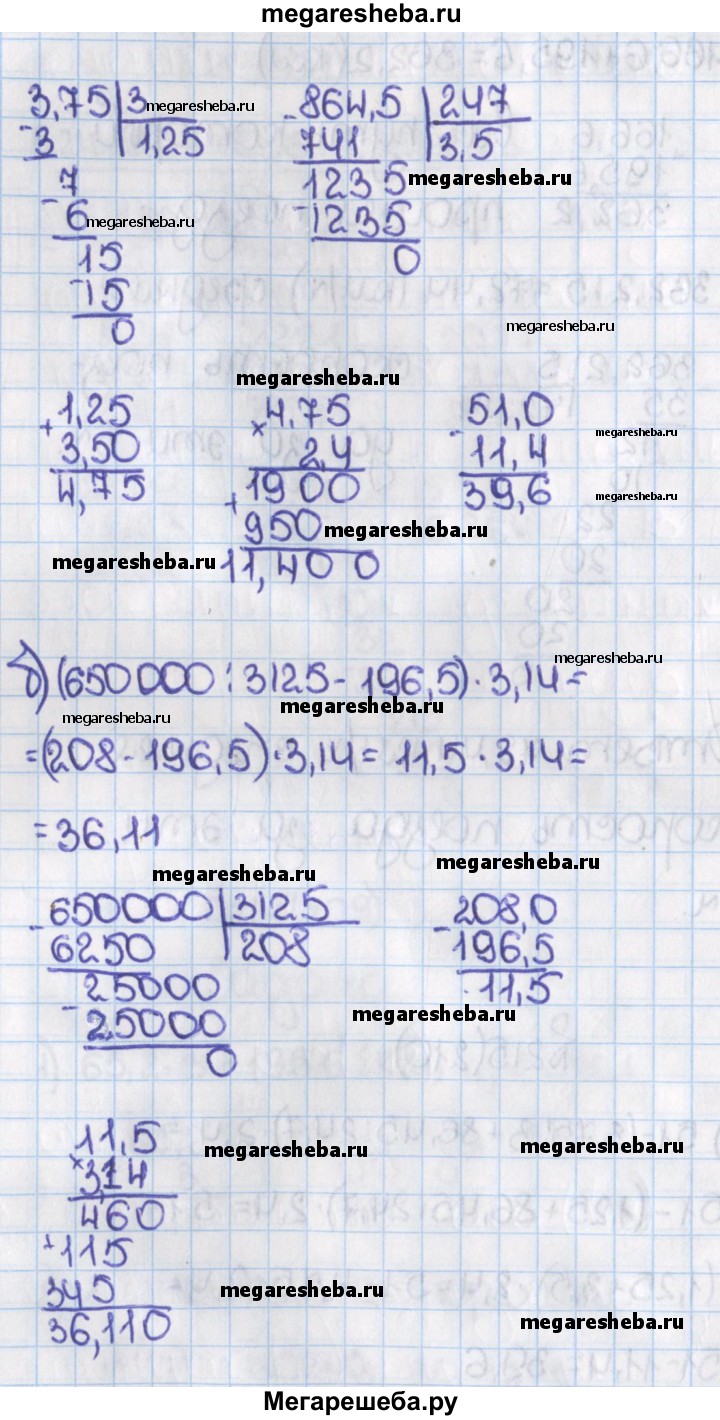 megaresheba.ru
3,75 | 3 megaresheba.ru - 864,5 | 247
- 3 | 1,25 741 | 3,5
7 1235 megaresheba.ru
- 6 megaresheba.ru - 1235
15 0
- 15
0 megaresheba.ru
megaresheba.ru
+ 1,25 × 4,75 - 51,0
3,50 2,4 11,4 megaresheba.ru
4,75 + 1900 39,6 megaresheba.ru
950 megaresheba.ru
megaresheba.ru 11,400
б) (650000 : 3125 - 196,5) · 3,14 = megaresheba.ru
megaresheba.ru megaresheba.ru
= (208 - 196,5) · 3,14 = 11,5 · 3,14 =
= 36,11
megaresheba.ru megaresheba.ru
- 650000 | 3125 - 208,0
6250 | 208 196,5
- 25000 11,5
25000 megaresheba.ru
0
11,5 megaresheba.ru megaresheba.ru
× 3,14
460
+ 115
345 megaresheba.ru
36,110 megaresheba.ru
Мегарешеба.ру